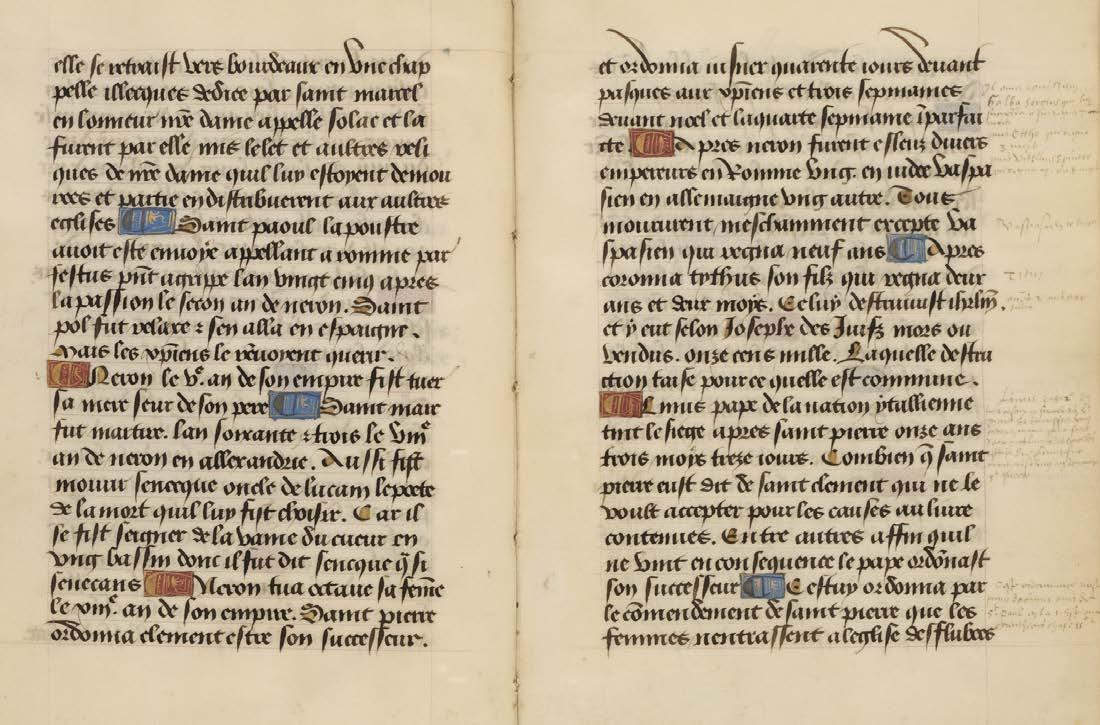 elle se retraist vers bourdeaux en vne chap
pelle illecques dediee par saint marcel
en lonneur nr̃e dame appelle solac et la
furent par elle mis le let et aultres reli
ques de nr̃e dame quil luy estoyent demou
rees et partie en distribuerent aux aultres
eglises Saint paoul lapoustre
auoit este enuoye appellant a romme par
festus pñt agrippe lan vingt cinq apres
la passion le secon an de neron. Saint
pol fut relaxe ⁊ sen alla en espaigne.
Mais les xp̃iens le renuoyent querir.
Neron le v.e an de son empire fist tuer
sa mere seur de son pere Saint marc
fut martire. lan soixante ⁊ trois le viii.e
an de neron en allexandrie. Aussi fist
mourir senecque oncle de lucam le poete
de la mort quil luy fist choisir. Car il
se fist seigner de la vaine du cueur en
vng bassin donc il fut dit sencque q̃ si
senecans Neron tua octaue sa fem̃e
le viii.e an de son empire. Saint pierre
ordonna clement estre son successeur.
et ordonna iusner quarente iours deuant
pasques aux xp̃iens et trois sepmaines
deuant noel et la quarte sepmaine ĩparfai
cte Apres neron furent esleuz diuers
empereurs en Romme vng. en iudee vaspa
sien en allemaigne vng autre. Tous
moururent meschamment excepte va
spasien qui regna neuf ans Apres
coronna tythus son filz qui regna deux
ans et deux moys. Celuy destruuist ihrl̃m.
et y eut selon Josephe des Juifz mors ou
vendus. onze cens mille. Laquelle destru
ction taise pour ce quelle est commune.
Linus pape de la nation ytallienne
tint le siege apres saint pierre onze ans
trois moys treze iours. Combien q̃ saint
pierre eust dit de saint clement qui ne le
voult accepter pour les causes au liure
contenues. Entre autres affin quil
ne vint en consequence le pape ordõnast
son successeur Cestuy ordonna par
le cõmendement de saint pierre que les
femmes nentrassent a leglise defflubees